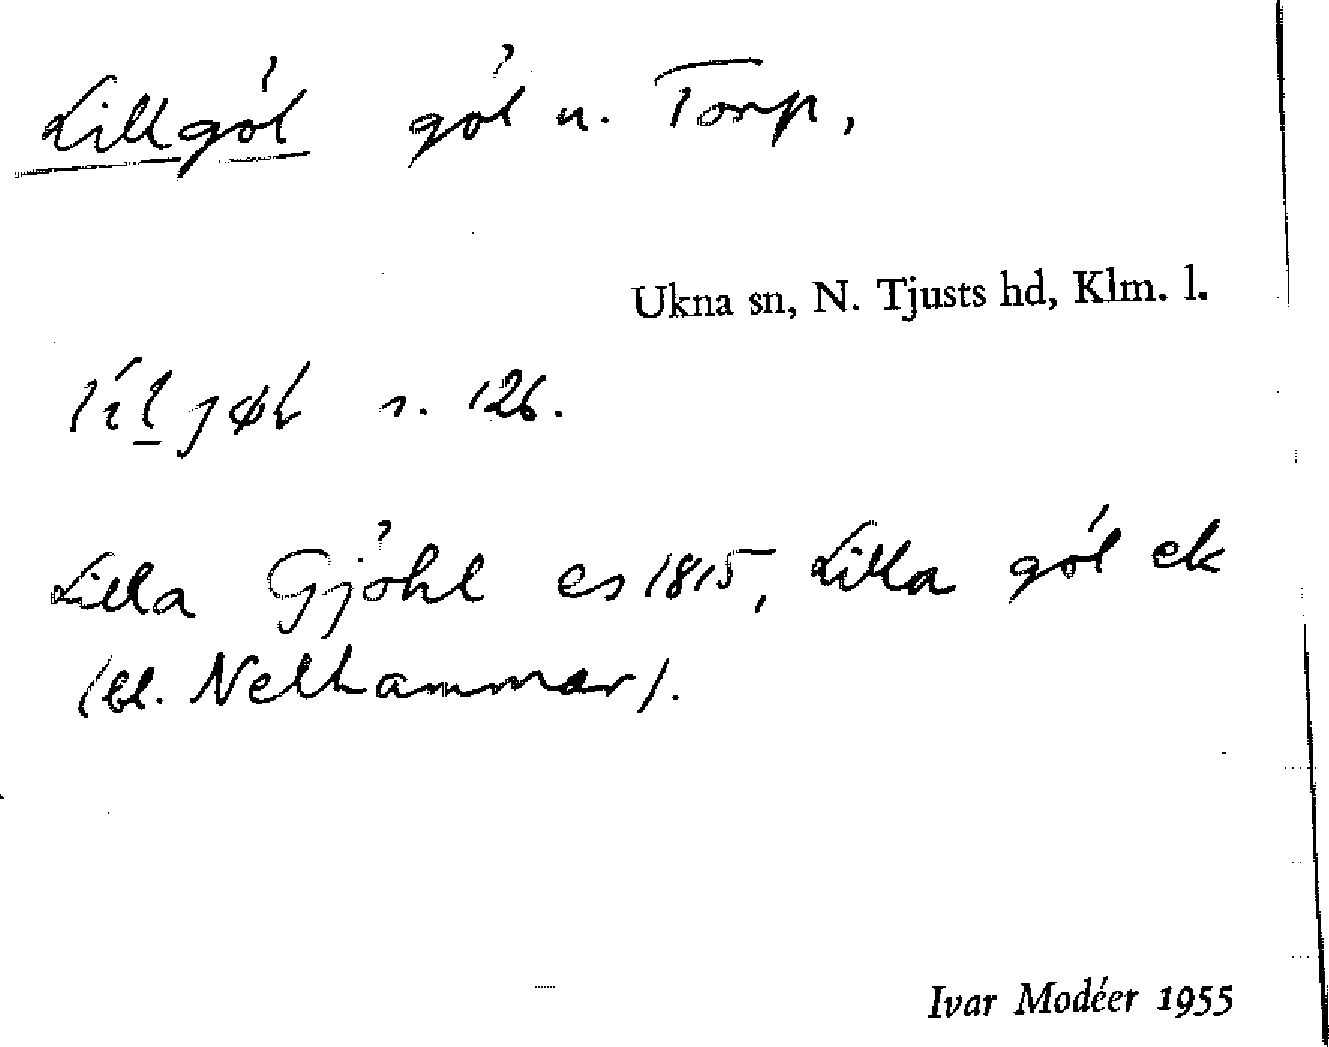 Lillgöl göl u. Torp,
Ukna sn, N. Tjusts hd, Klm. l.
s. 126.
Lilla Gjöhl es 1815, Lilla göl ek
(bl. Nelhammar).
Ivar Modéer 1955